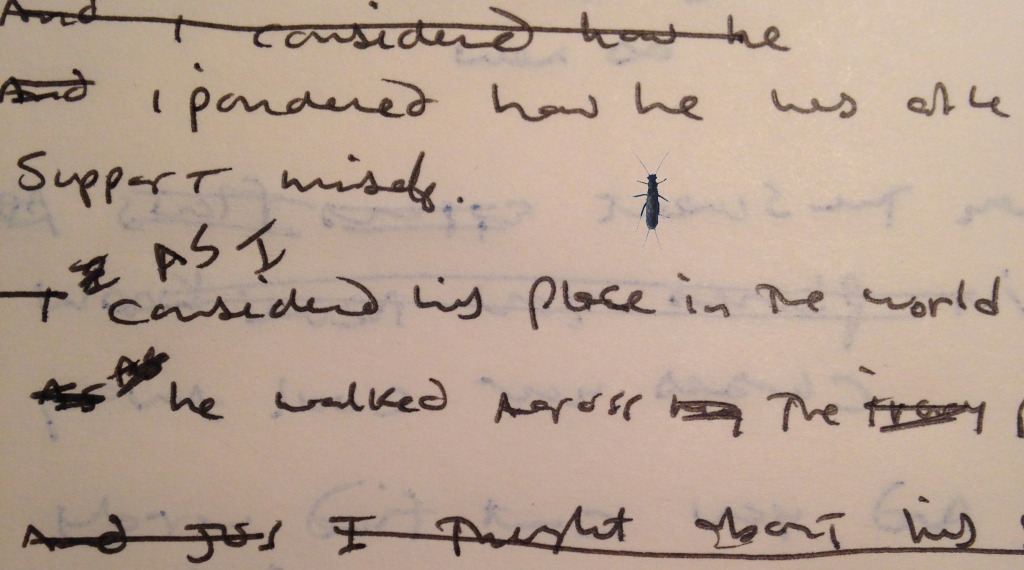 And I considered how he
And I pondered how he was able
Support himself.
AS I
I considered his place in the world
As he walked Across the The
And just I Thought about his